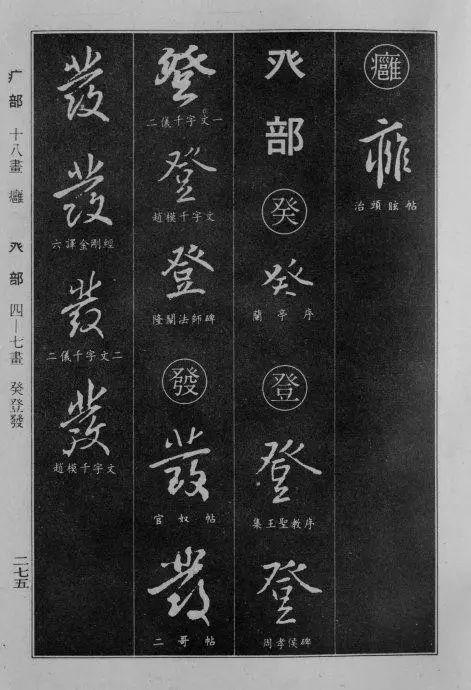 癰
癰
治頭眩帖
癶部
癸
癸
蘭亭序
登
登
集王聖教序
登
周孝侯碑
登
二儀千字文一
登
趙模千字文
登
隆闡法師碑
發
發
官奴帖
發
二哥帖
發
發
六譯金剛經
發
二儀千字文二
發
趙模千字文
疒部 十八畫 癰 癶部 四—七畫 癸登發
二七五